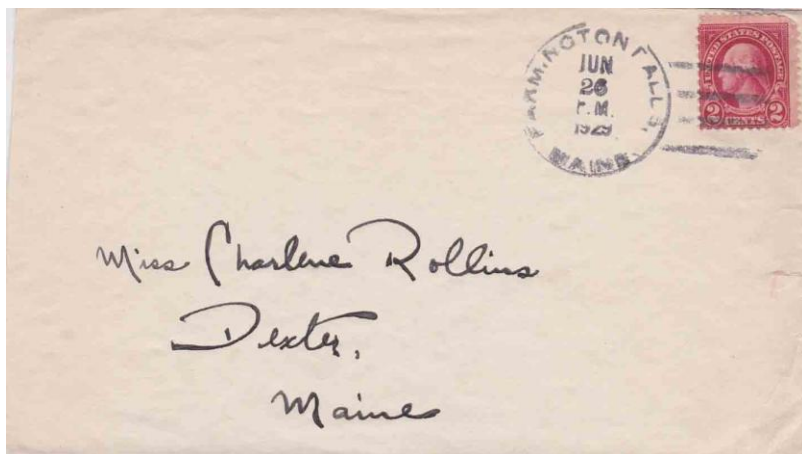 FARMINGTON FALLS,
JUN
26
P.M.
1929
MAINE
UNITED STATES POSTAGE
2 CENTS 2
Miss Charlene Rollins
Dexter,
Maine